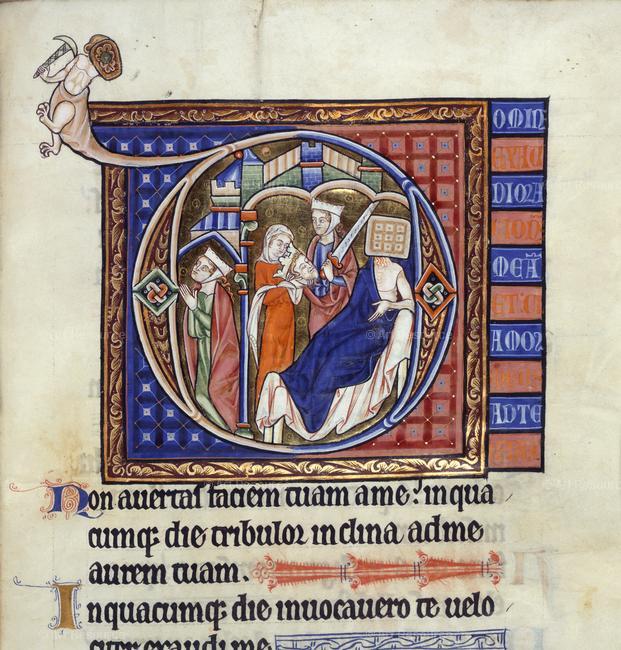 OMIN
EXAU
DIORA
MEÃ
AMOR
ADTE
Non auertas faciem tuam a me: in qua
cumq; die tribulor inclina ad me
aurem tuam.
Inquacumq; die inuocauero te uelo
citer exaudi me